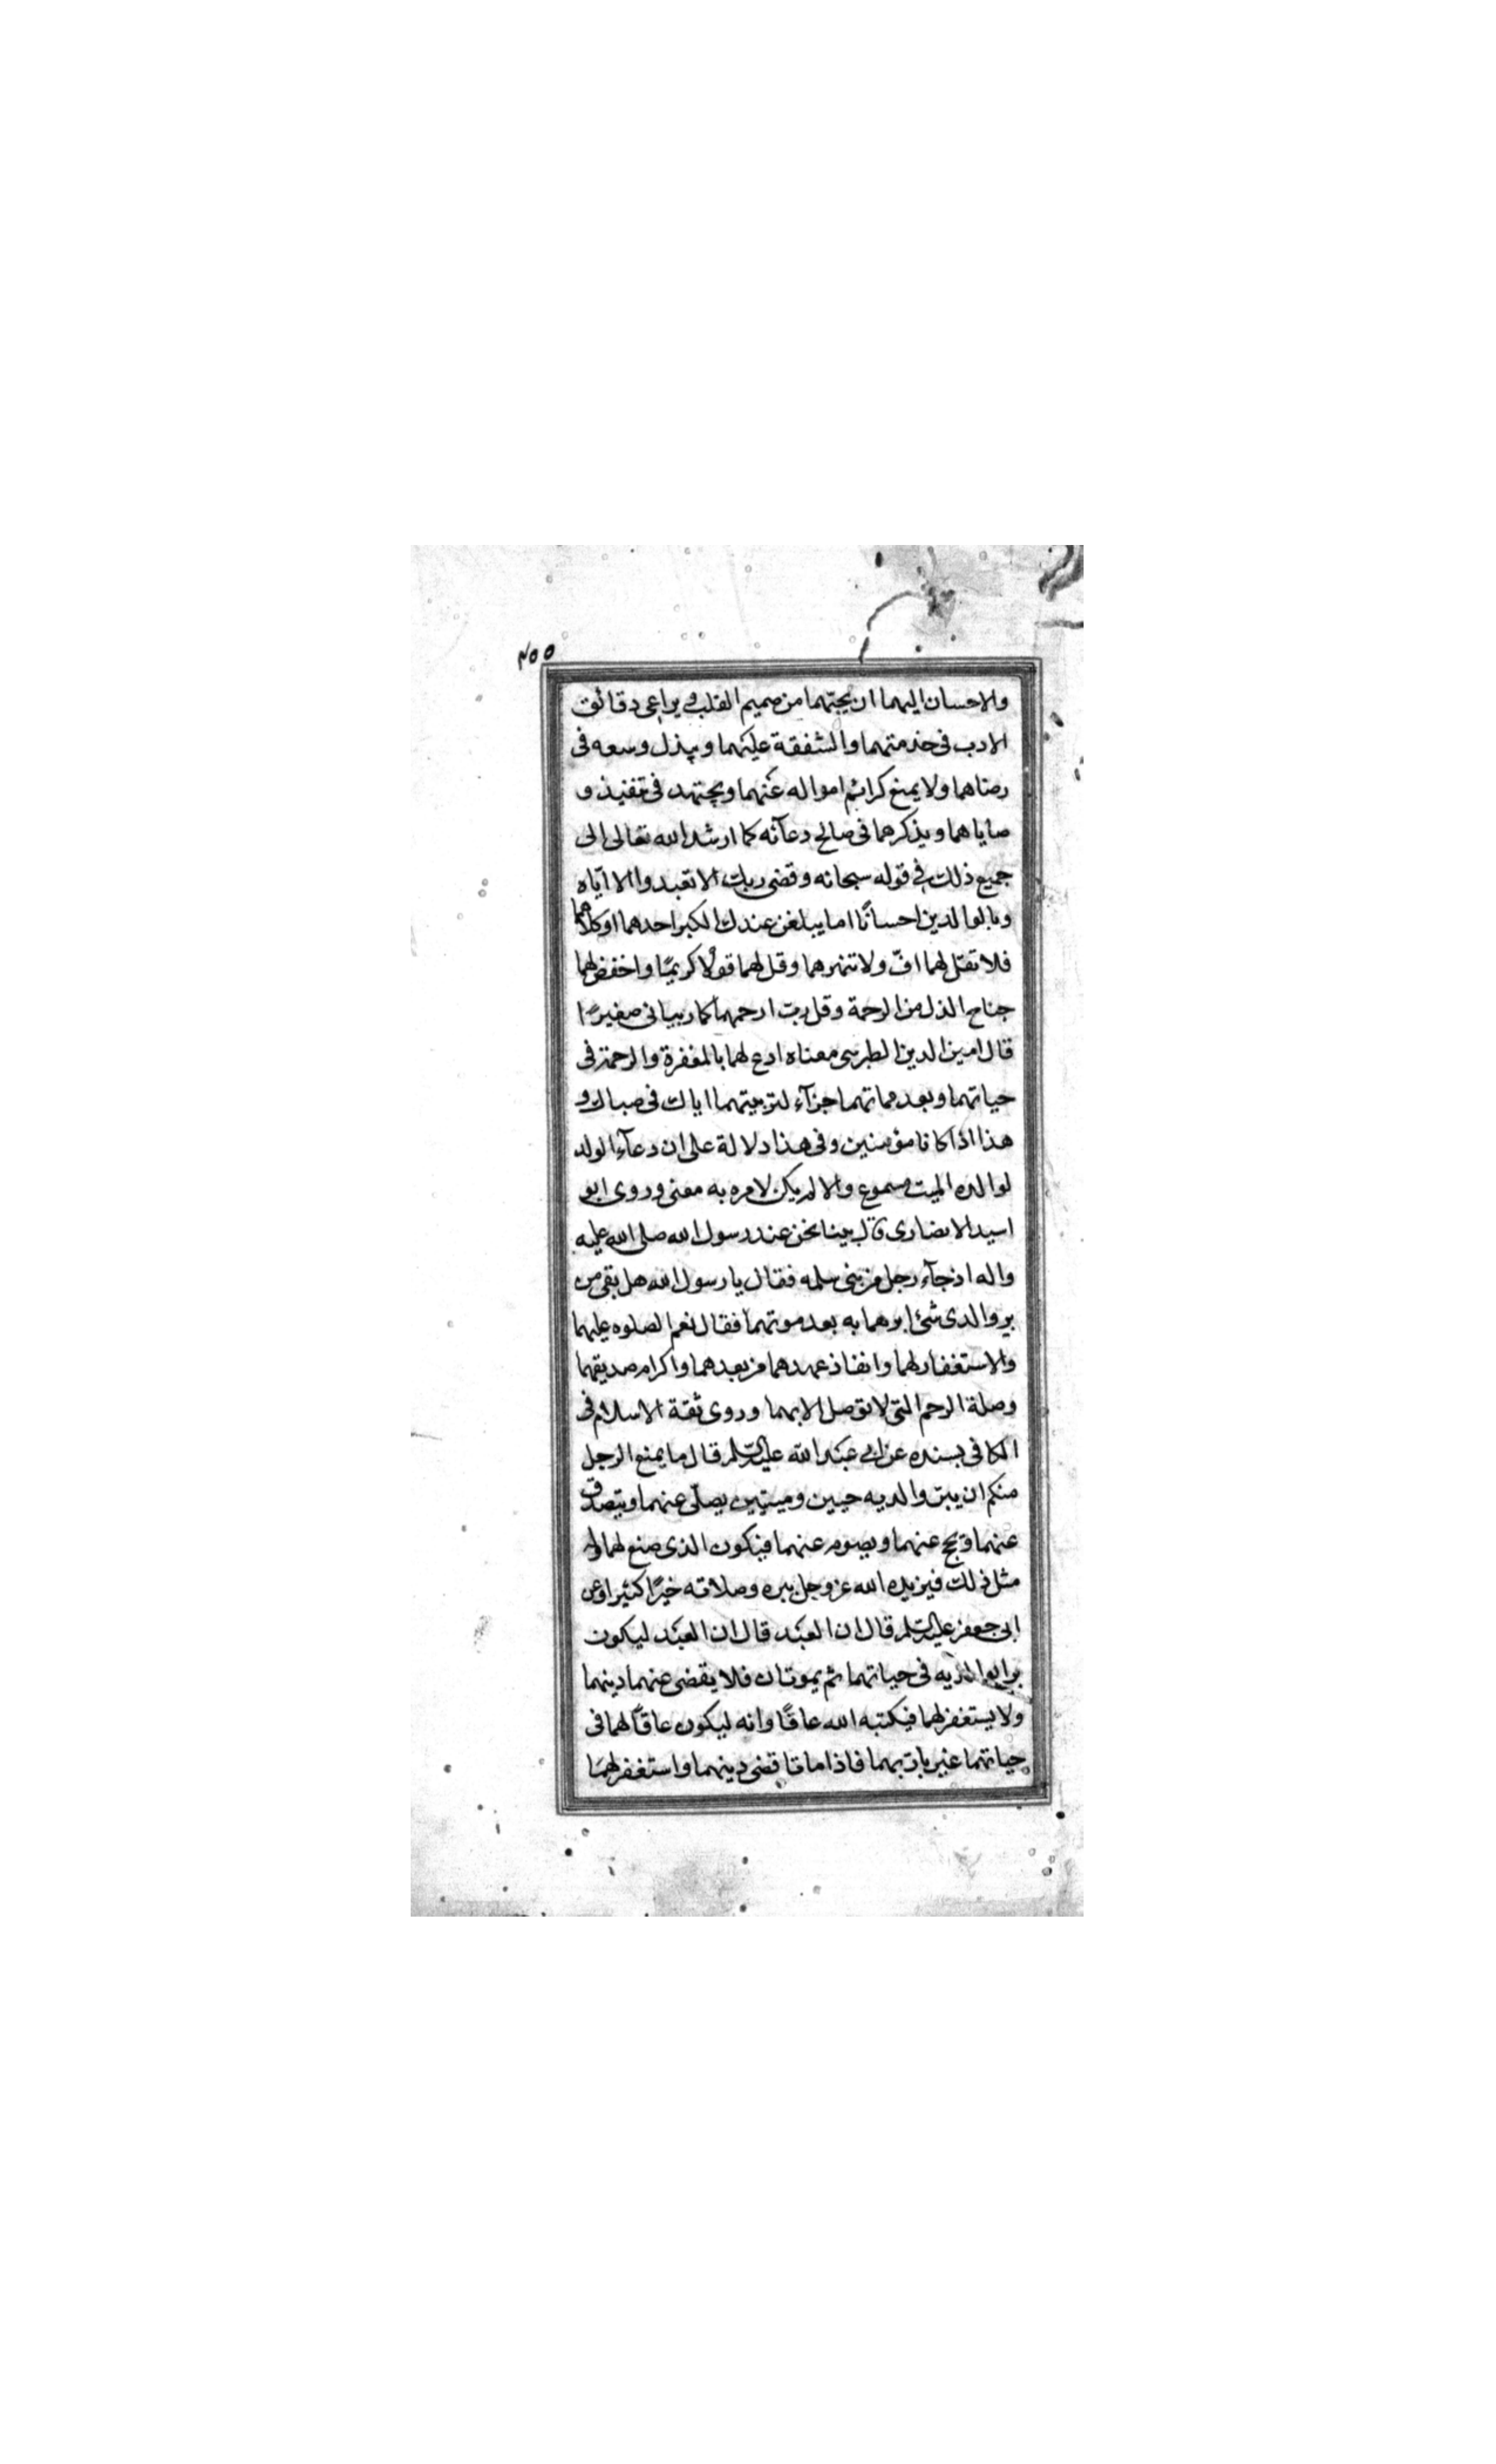 ٢٥٥
والاحسان اليهما ان يحبّهما من صميم القلب ويراعى دقائق
الادب فى خدمتهما والشفقة عليهما ويبذل وسعه فى
رضاهما ولا يمنع كرائم امواله عنهما ويجتهد فى تنفيذ و
صاياهما ويذكرهما فى صالح دعآئه كما ارشد الله تعالى الى
جميع ذلك فى قوله سبحانه وقضى ربك الا تعبدوا الا اياه
وبالوالدين احسانًا اما يبلغن عندك الكبر احدهما او كلاهما
فلا تقل لهما افّ ولا تنهرهما وقل لهما قولًا كريمًا واخفض لهما
جناح الذل من الرحمة وقل ربّ ارحمهما كما ربيانى صغيرًا
قال امين الدين الطبرسى معناه ادع لهما بالمغفرة والرحمة فى
حياتهما وبعد مماتهما جزآء لتربيتهما اياك فى صباك و
هذا اذا كانا مؤمنين وفى هذا دلالة على ان دعآء الولد
لوالده الميت مسموع والا لم يكن لامره به معنى وروى ابو
اسيد الانصارى قال بينا نحن عند رسول الله صلى الله عليه
واله اذ جآء رجل من بنى سلمه فقال يا رسول الله هل بقى من
بر والدى شئ ابرهما به بعد موتهما فقال نعم الصلوه عليهما
والاستغفار لهما وانفاذ عهدهما من بعدهما واكرام صديقهما
وصلة الرحم التى لا توصل الا بهما وروى ثقة الاسلام فى
الكافى بسنده عن ابى عبد الله عليه السّلم قال ما يمنع الرجل
منكم ان يبرّ والديه حيين وميتين يصلّى عنهما ويتصدق
عنهما ويحج عنهما ويصوم عنهما فيكون الذى صنع لهما وله
مثل ذلك فيزيده الله عز وجل ببره وصلاته خيرًا كثيرا وعن
ابى جعفر عليه السّلم قال ان العبد قال ان العبد ليكون
برا بوالديه فى حياتهما ثم يموتان فلا يقضى عنهما دينهما
ولا يستغفر لهما فيكتبه الله عاقًا وانه ليكون عاقًا لهما فى
حياتهما غير بارّ بهما فاذا ماتا قضى دينهما واستغفر لهما